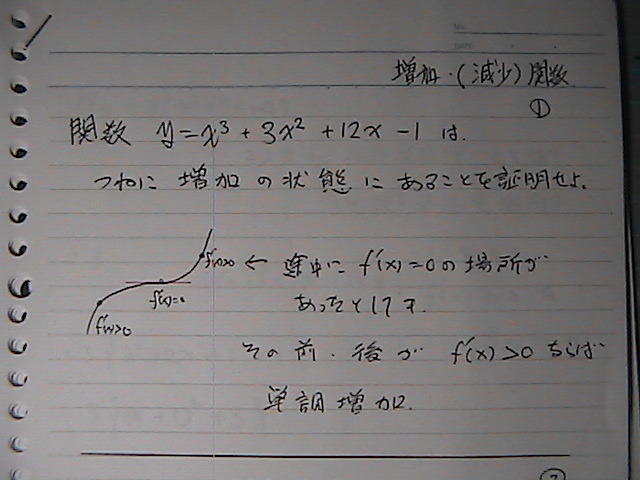 増加・(減少)関数
①
関数 y=x³+3x²+12x-1 は.
つねに 増加 の 状態 に あることを証明せよ.
f'(x)>0 ← 途中に f'(x)=0 の 場所が
f'(x)=0
あったとしても.
f'(x)>0
その前・後が f'(x)>0 ならば
単調増加.
②